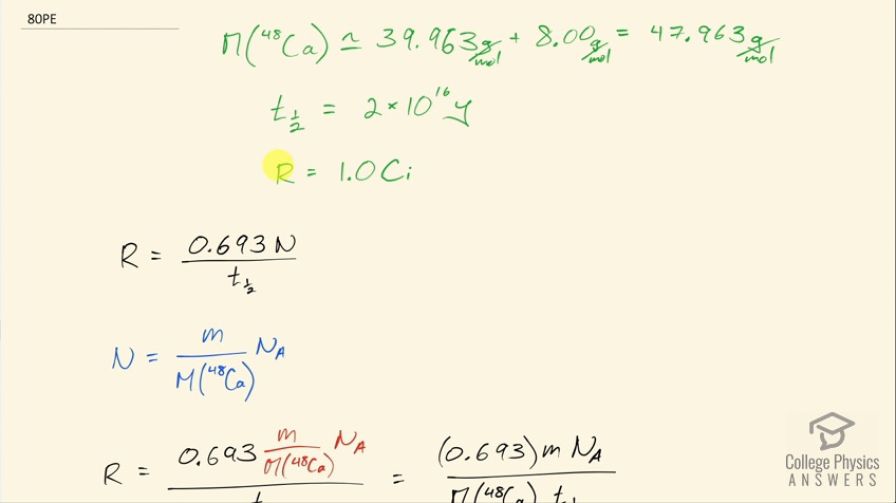 80PE
M(⁴⁸Ca) ≃ 39.963 g/mol + 8.00 g/mol = 47.963 g/mol
t½ = 2 × 10¹⁶ y
R = 1.0 Ci
R = 0.693 N / t½
N = m / M(⁴⁸Ca) N_A
R = 0.693 m / M(⁴⁸Ca) N_A / t = (0.693) m N_A / M(⁴⁸Ca) t½
College Physics
ANSWERS